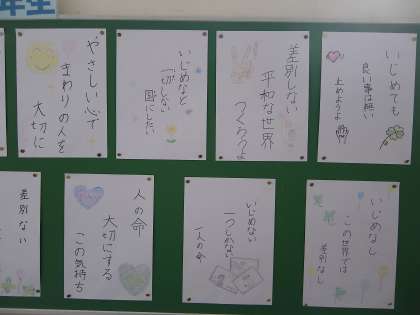 年生
いじめても
良い事は無い
止めようよ
差別しない
平和な世界
つくろうよ
いじめなど
一切しない
国にしたい
やさしい心で
まわりの人を
大切に
いじめなし
この世界では
差別なし
いじめない
一つしかない
一人の命
人の命
大切にする
この気持ち
差別ない